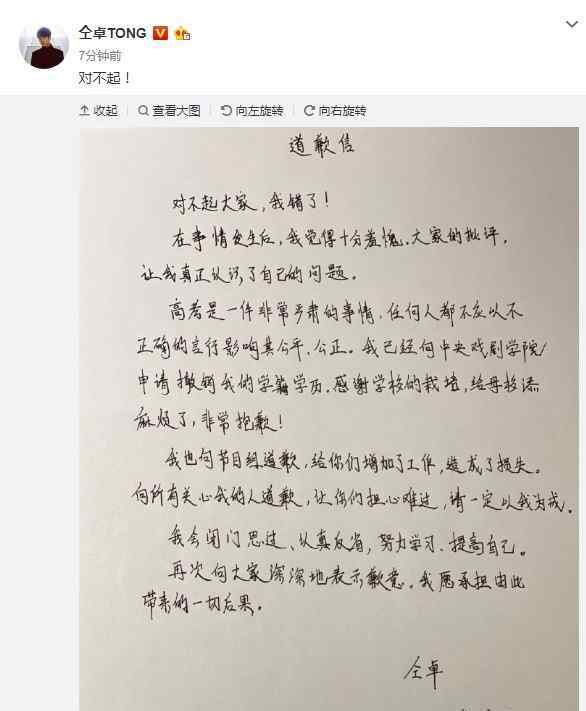 仝卓TONG
7分钟前
对不起！
收起 查看大图 向左旋转 向右旋转
道歉信
对不起大家，我错了！
在事情发生后，我觉得十分羞愧。大家的批评，
让我真正认识了自己的问题。
高考是一件非常严肃的事情，任何人都不应以不
正确的言行影响其公平、公正。我已经向中央戏剧学院
申请撤销我的学籍学历。感谢学校的栽培，给母校添
麻烦了，非常抱歉！
我也向节目组道歉，给你们增加了工作，造成了损失。
向所有关心我的人道歉，让你们担心难过，请一定以我为戒。
我会闭门思过、认真反省，努力学习、提高自己。
再次向大家深深地表示歉意。我愿承担由此
带来的一切后果。
仝卓